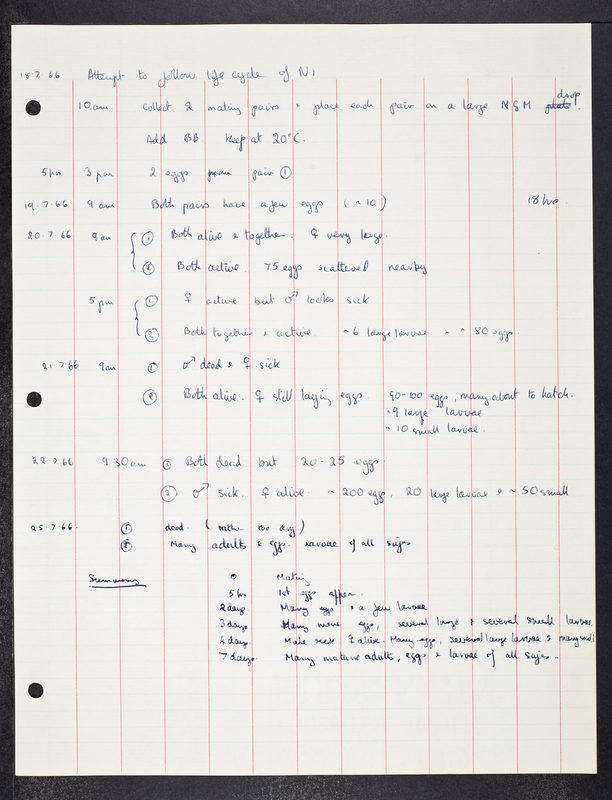 18.7.66 Attempt to follow life cycle of N1
10am Collect 2 mating pairs & place each pair on a large NGM plate drop.
Add BB Keep at 20°C.
5hrs 3pm 2 eggs from pair ①
19.7.66 9am Both pairs have a few eggs (~10) 18hrs.
20.7.66 9am ① Both alive & together. ♀ very large.
② Both active. 75 eggs scattered nearby
5pm ① ♀ active but ♂ looks sick
② Both together & active. ~6 large larvae & ~80 eggs.
21.7.66 9am ① ♂ dead & ♀ sick
② Both alive. ♀ still laying eggs. 90-100 eggs, many about to hatch.
~9 large larvae
~10 small larvae.
22.7.66 9 30am ① Both dead but 20-25 eggs.
② ♂ sick. ♀ alive. ~200 eggs, 20 large larvae & ~50 small
25.7.66. ① dead. (rather too dry)
② Many adults & eggs. Larvae of all sizes
Summary 0 Mating
5hrs 1st eggs appear.
2 days Many eggs & a few larvae
3 days Many more eggs, several large & several small larvae
4 days Male sick ♀ alive. Many eggs, several large larvae & many small
7 days. Many mature adults, eggs & larvae of all sizes.